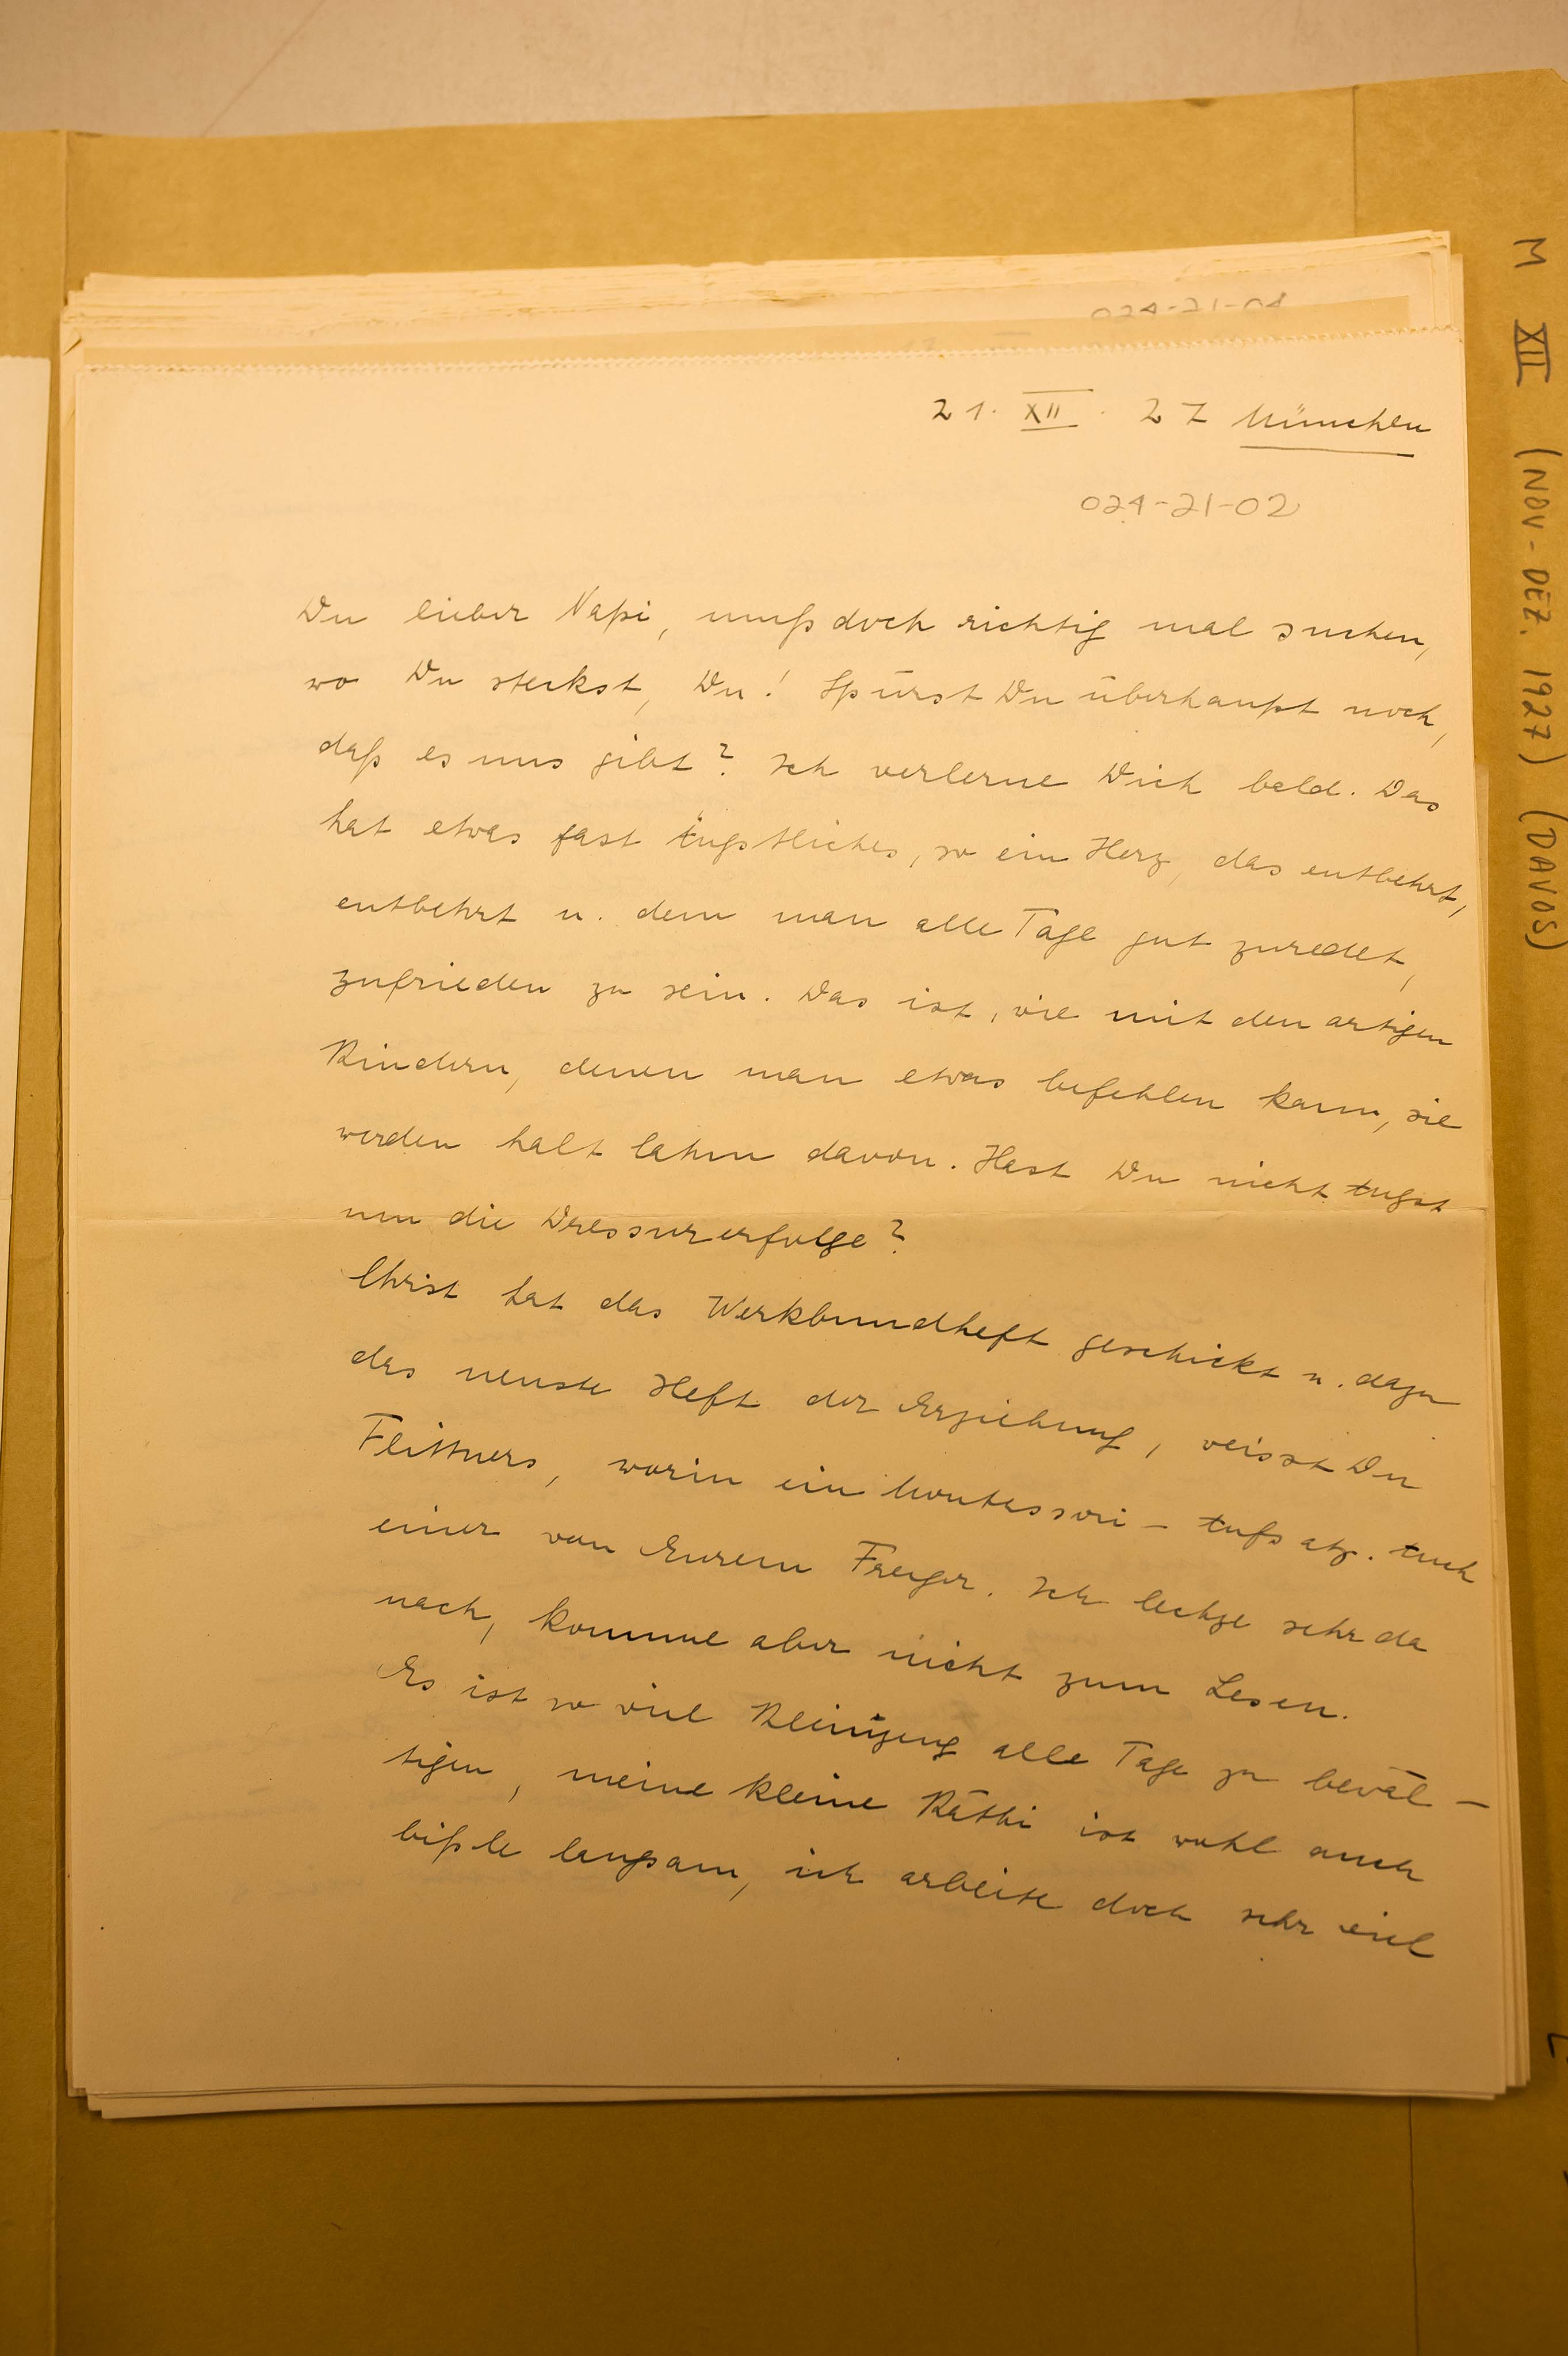 024-21-04
21. XII. 27 München
024-21-02
Du lieber Napi, muß doch richtig mal suchen,
wo Du steckst, Du! Spürst Du überhaupt noch,
daß es uns gibt? Ich verlerne Dich bald. Das
hat etwas fast Ängstliches, so ein Herz, das entbehrt,
entbehrt u. dem man alle Tage gut zuredet,
zufrieden zu sein. Das ist, wie mit den artigen
Kindern, denen man etwas befehlen kann, sie
werden halt lahm davon. Hast Du nicht Angst
um die Dressurerfolge?
Christ hat das Werkbundheft geschickt u. dazu
das neuste Heft der Erziehung, weisst Du
Flittners, worin ein Montessori-Aufsatz. Auch
einer von Eurem Freyer. Ich lechze sehr da
nach, komme aber nicht zum Lesen.
Es ist so viel Kleinzeug alle Tage zu bewäl-
tigen, meine kleine Käthi ist wohl auch
bißle langsam, ich arbeite doch sehr viel
M XII (NOV-DEZ. 1927) (DAVOS)